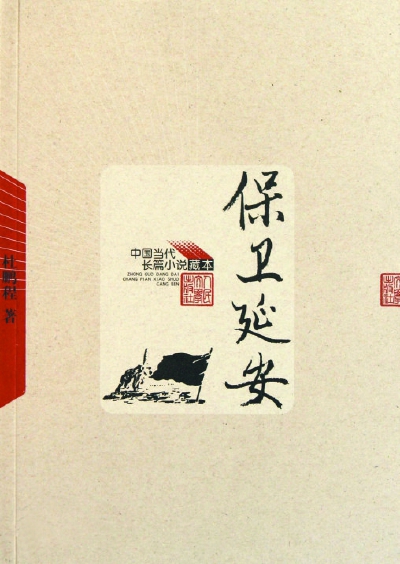 保卫延安
中国当代
长篇小说藏本
ZHONG GUO DANG DAI
CHANG PIAN XIAO SHUO
CANG BEN
杜鹏程 著